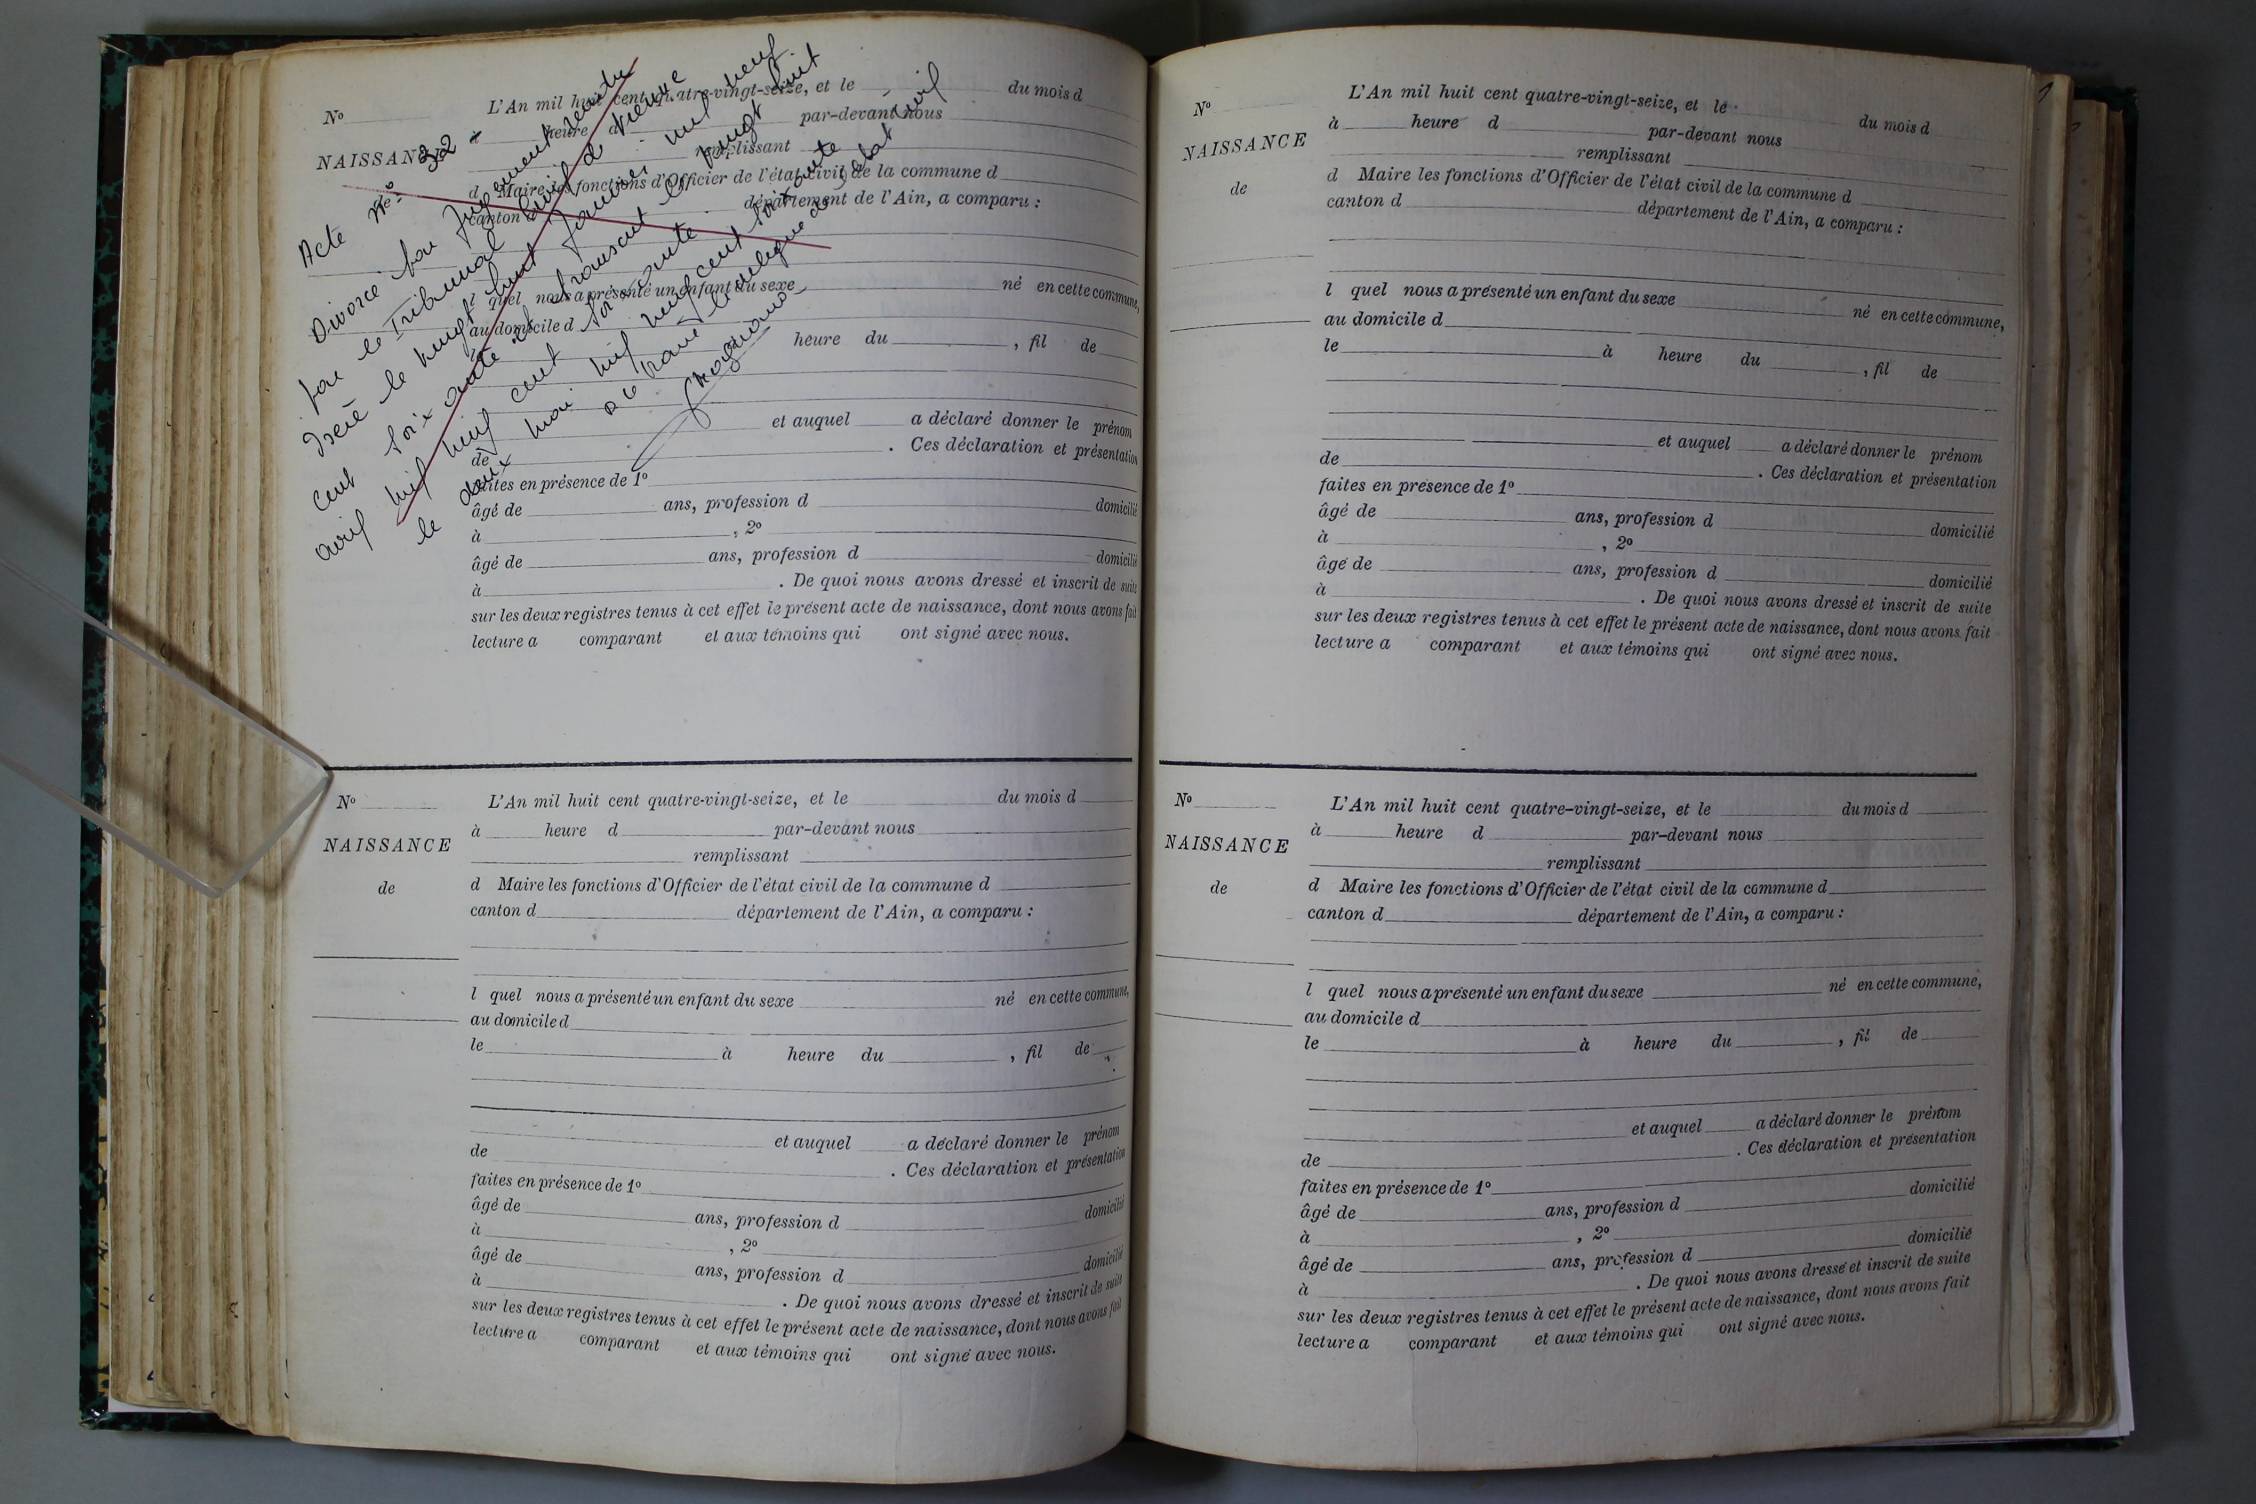 Acte N° 32
Divorcé par Jugement rendu
par le Tribunal Civil de Vienne
Isère le vingt huit Janvier mil neuf
cent soixante et transcrit le vingt huit
avril mil neuf cent soixante
le deux mai mil neuf cent soixante
N°
NAISSANCE
de
L'An mil huit cent quatre-vingt-seize, et le du mois d
à heure d par-devant nous
remplissant
d Maire les fonctions d'Officier de l'état civil de la commune d
canton d département de l'Ain, a comparu :
l quel nous a présenté un enfant du sexe né en cette commune,
au domicile d
heure du , fil de
et auquel a déclaré donner le prénom
de . Ces déclaration et présentation
faites en présence de 1°
âgé de ans, profession d domicilié
à , 2°
âgé de ans, profession d domicilié
à . De quoi nous avons dressé et inscrit de suite
sur les deux registres tenus à cet effet le présent acte de naissance, dont nous avons fait
lecture a comparant et aux témoins qui ont signé avec nous.
N°
NAISSANCE
de
L'An mil huit cent quatre-vingt-seize, et le du mois d
à heure d par-devant nous
remplissant
d Maire les fonctions d'Officier de l'état civil de la commune d
canton d département de l'Ain, a comparu :
l quel nous a présenté un enfant du sexe né en cette commune,
au domicile d
le à heure du , fil de
et auquel a déclaré donner le prénom
de . Ces déclaration et présentation
faites en présence de 1°
âgé de ans, profession d domicilié
à , 2°
âgé de ans, profession d domicilié
à . De quoi nous avons dressé et inscrit de suite
sur les deux registres tenus à cet effet le présent acte de naissance, dont nous avons fait
lecture a comparant et aux témoins qui ont signé avec nous.
N°
NAISSANCE
de
L'An mil huit cent quatre-vingt-seize, et le du mois d
à heure d par-devant nous
remplissant
d Maire les fonctions d'Officier de l'état civil de la commune d
canton d département de l'Ain, a comparu :
l quel nous a présenté un enfant du sexe né en cette commune,
au domicile d
le à heure du , fil de
et auquel a déclaré donner le prénom
de . Ces déclaration et présentation
faites en présence de 1°
âgé de ans, profession d domicilié
à , 2°
âgé de ans, profession d domicilié
à . De quoi nous avons dressé et inscrit de suite
sur les deux registres tenus à cet effet le présent acte de naissance, dont nous avons fait
lecture a comparant et aux témoins qui ont signé avec nous.
N°
NAISSANCE
de
L'An mil huit cent quatre-vingt-seize, et le du mois d
à heure d par-devant nous
remplissant
d Maire les fonctions d'Officier de l'état civil de la commune d
canton d département de l'Ain, a comparu :
l quel nous a présenté un enfant du sexe né en cette commune,
au domicile d
le à heure du , fil de
et auquel a déclaré donner le prénom
de . Ces déclaration et présentation
faites en présence de 1°
âgé de ans, profession d domicilié
à , 2°
âgé de ans, profession d domicilié
à . De quoi nous avons dressé et inscrit de suite
sur les deux registres tenus à cet effet le présent acte de naissance, dont nous avons fait
lecture a comparant et aux témoins qui ont signé avec nous.